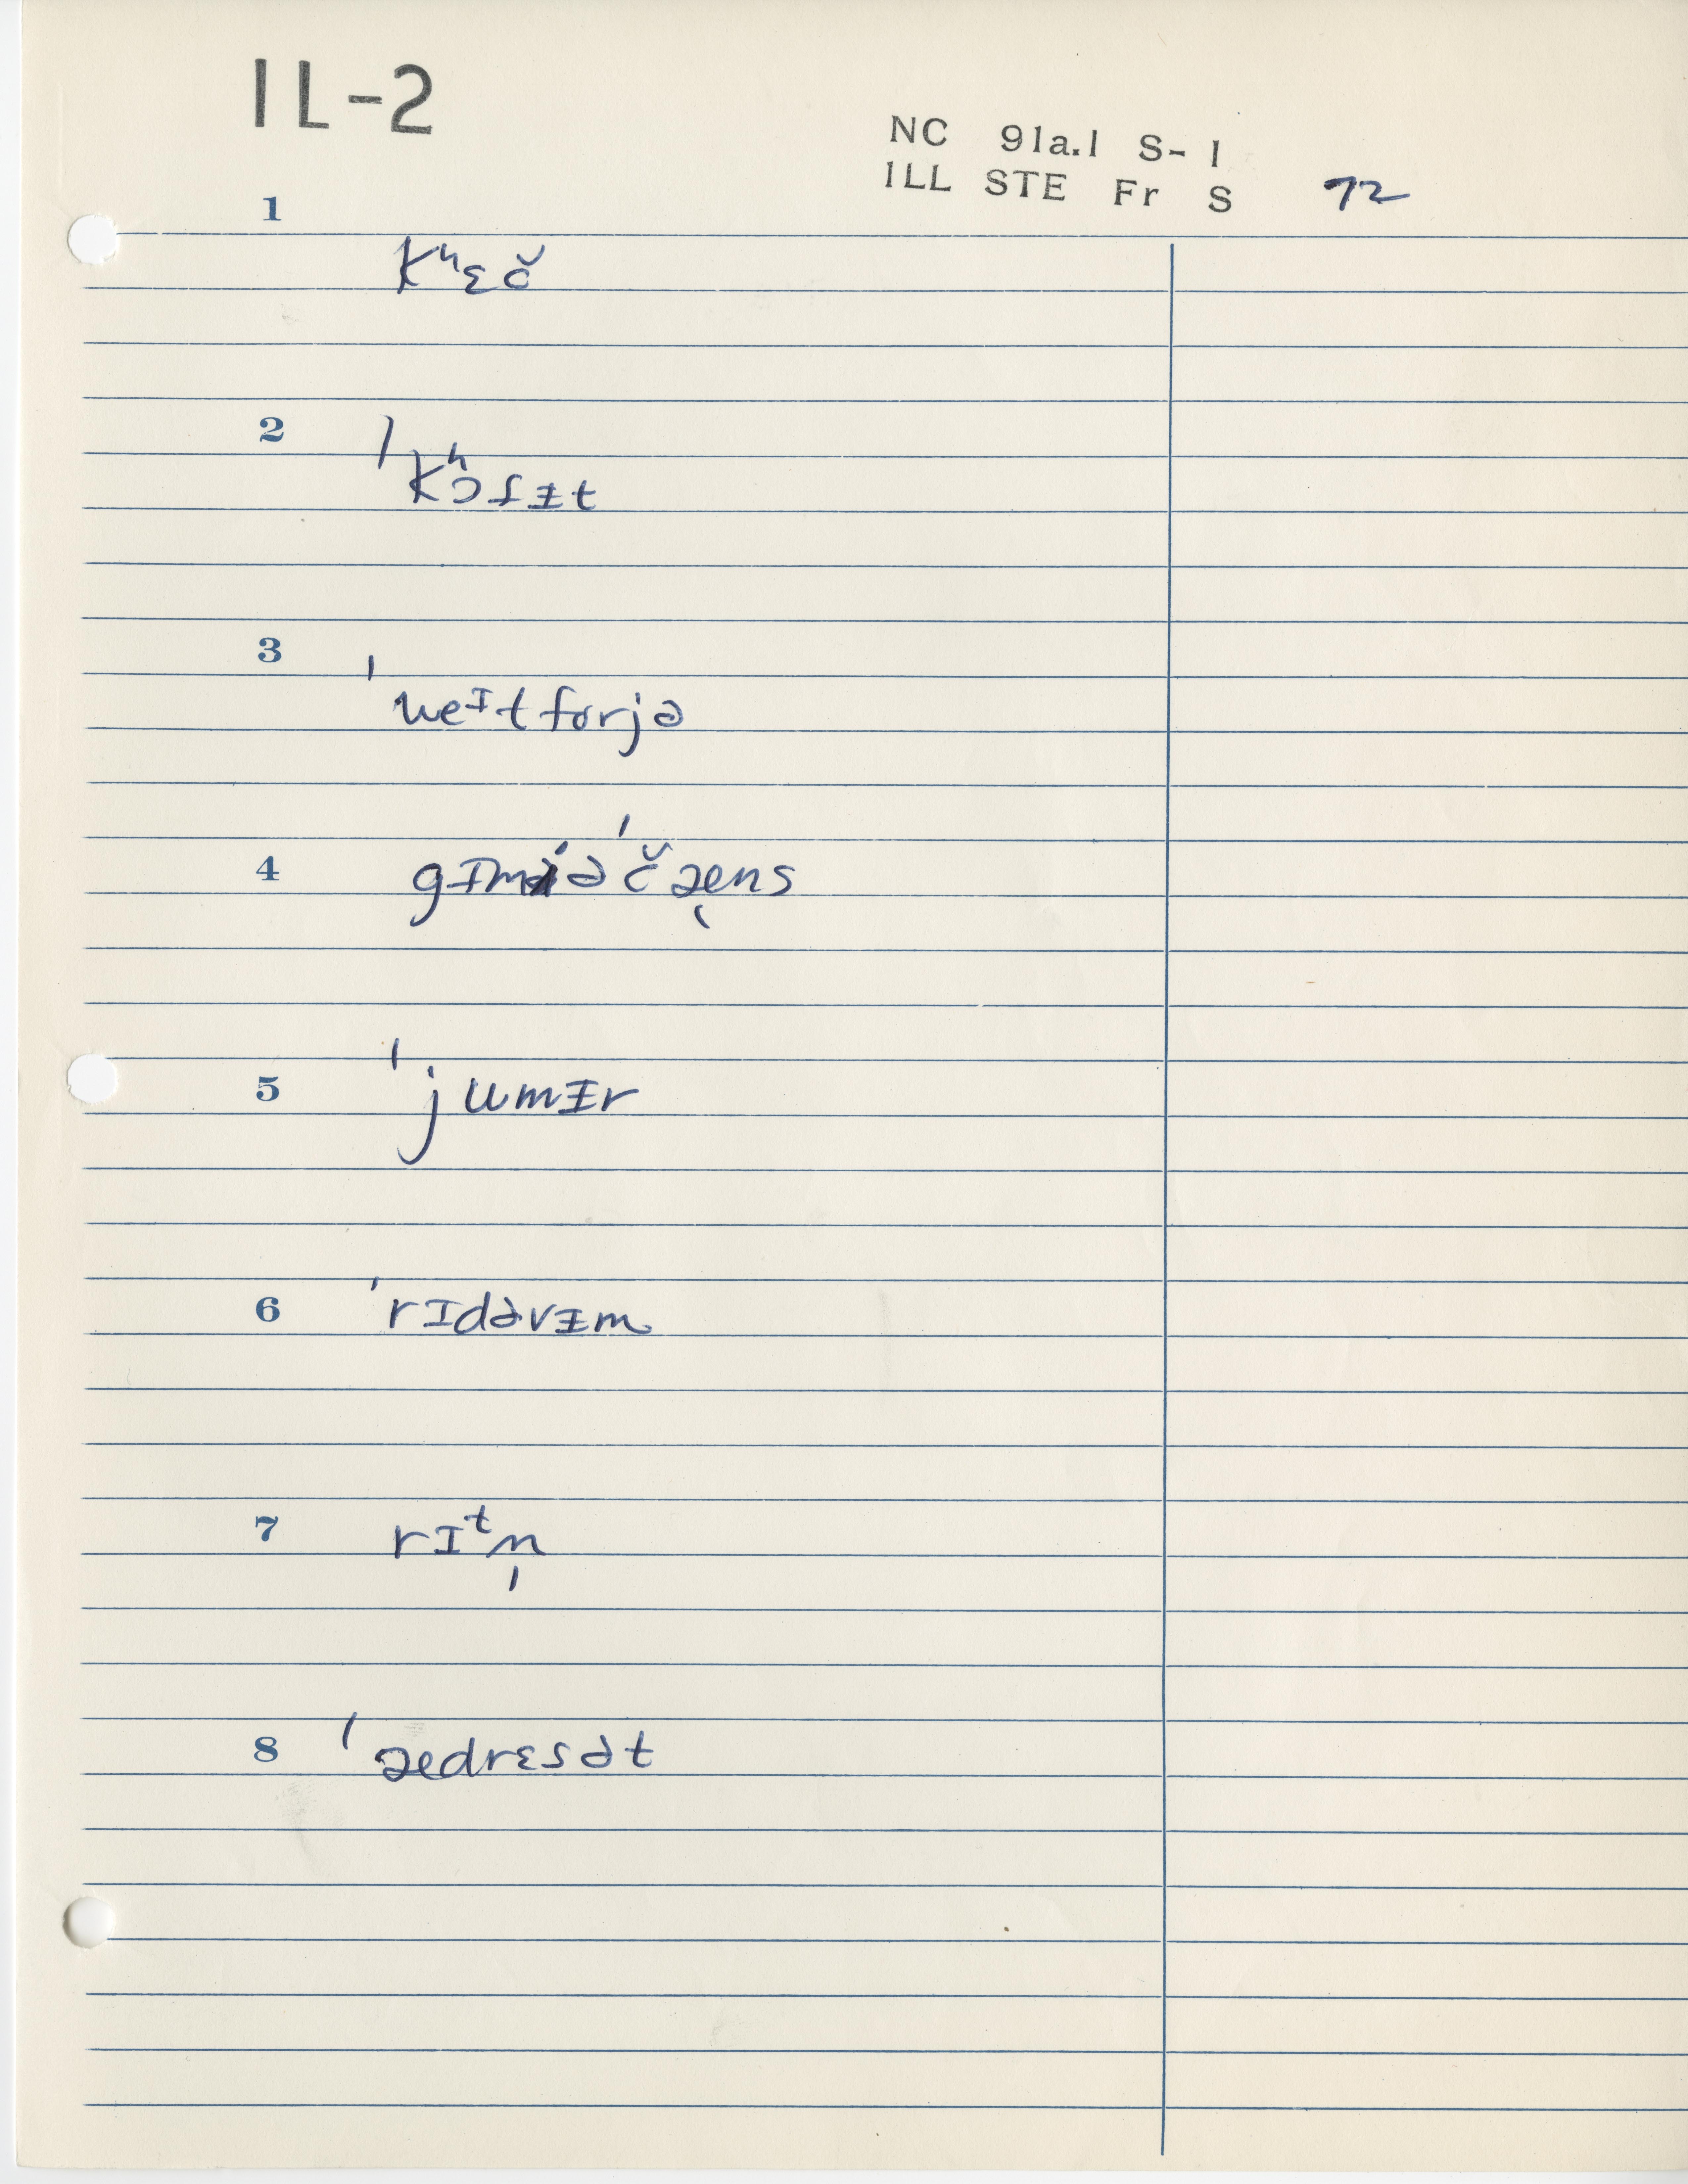 IL-2
NC 91a.1 S-1
ILL STE Fr S 72
1
kʰɛč
2
ˈkʰɔfɪ̵t
3
ˈweᴵtforjə
4
gɪmiəˈčæ̨ns
5
ˈjumɪ̵r
6
ˈrɪdəvɪ̵m
7
rɪᵗn̩
8
ˈædrɛsət